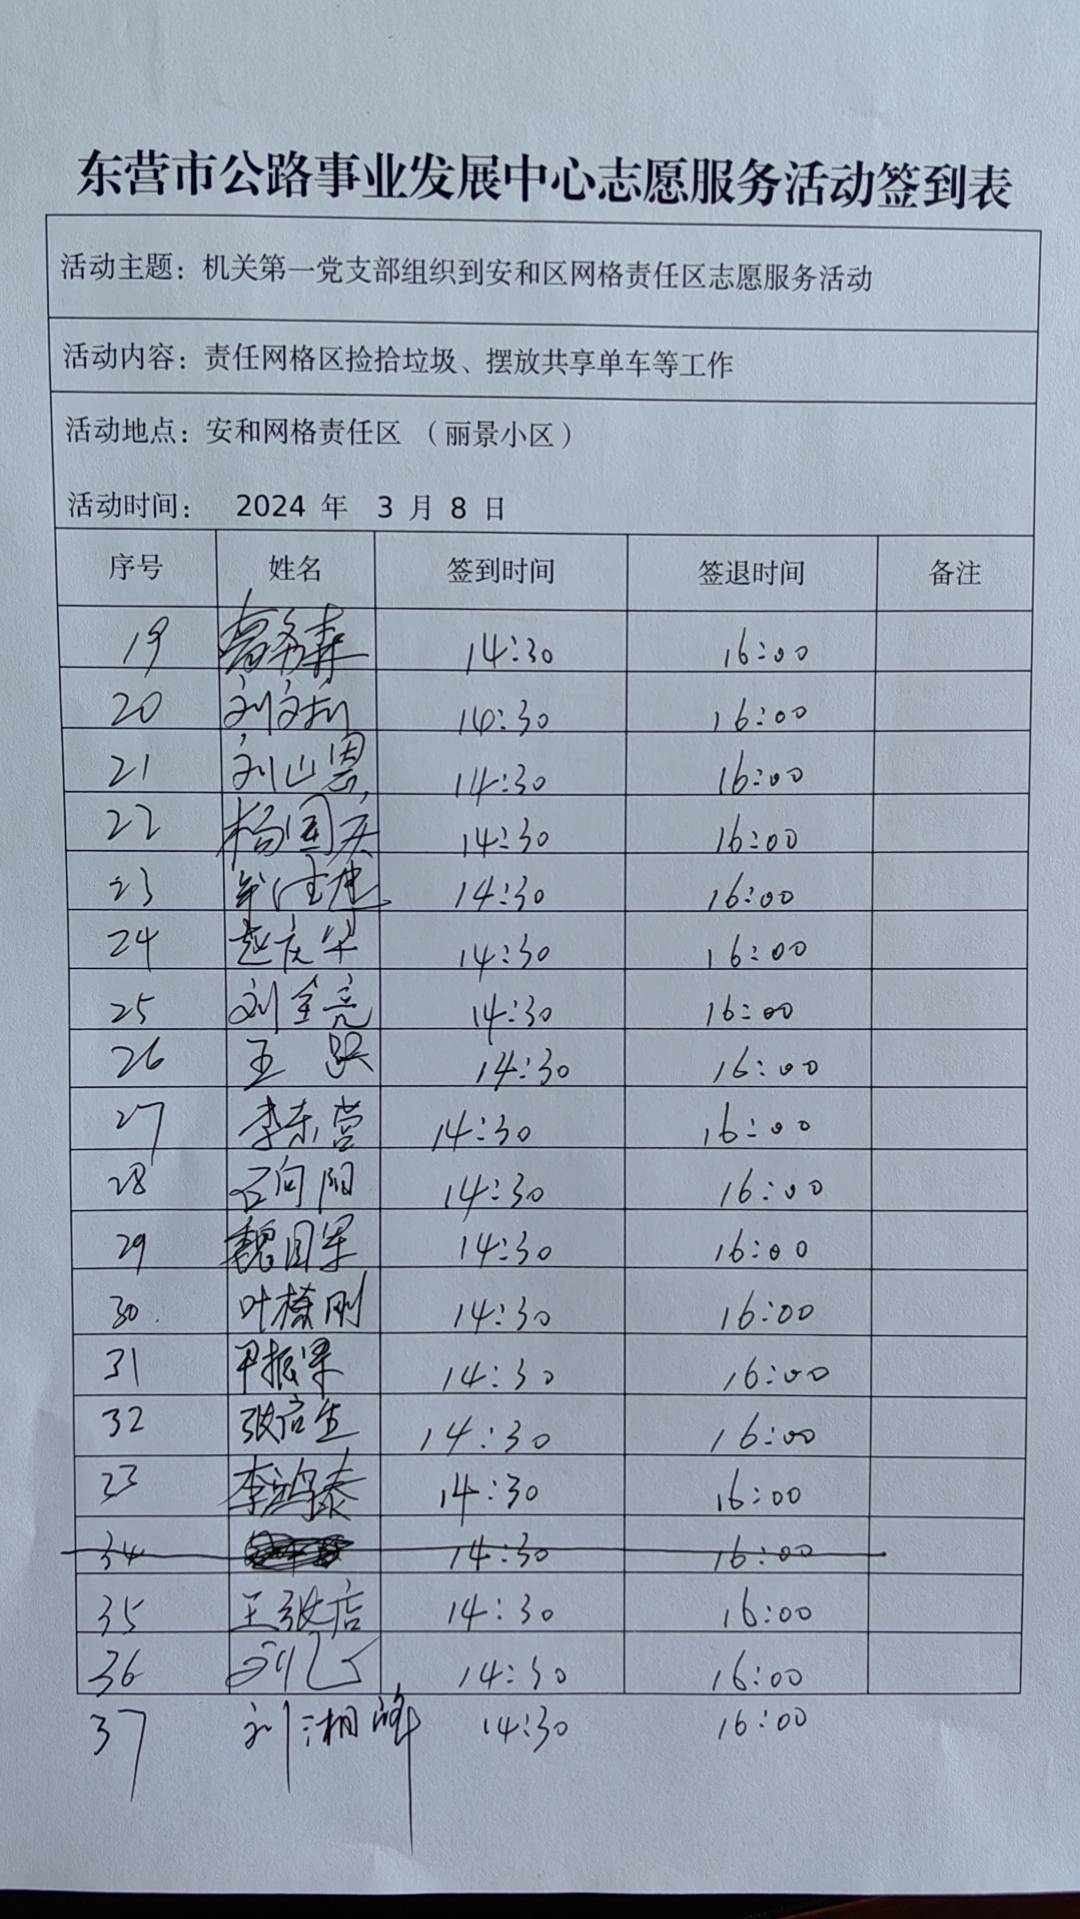 东营市公路事业发展中心志愿服务活动签到表
活动主题：机关第一党支部组织到安和区网格责任区志愿服务活动
活动内容：责任网格区捡拾垃圾、摆放共享单车等工作
活动地点：安和网格责任区 （丽景小区）
活动时间： 2024 年 3 月 8 日
序号 姓名 签到时间 签退时间 备注
19 14:30 16:00
20 刘文利 14:30 16:00
21 刘山恩 14:30 16:00
22 杨国庆 14:30 16:00
23 14:30 16:00
24 赵庆华 14:30 16:00
25 刘金亮 14:30 16:00
26 王 14:30 16:00
27 李东营 14:30 16:00
28 石向阳 14:30 16:00
29 魏国军 14:30 16:00
30 叶 刚 14:30 16:00
31 尹振军 14:30 16:00
32 张启生 14:30 16:00
33 李鸿泰 14:30 16:00
34 14:30 16:00
35 王 店 14:30 16:00
36 刘 14:30 16:00
37 刘湘峰 14:30 16:00